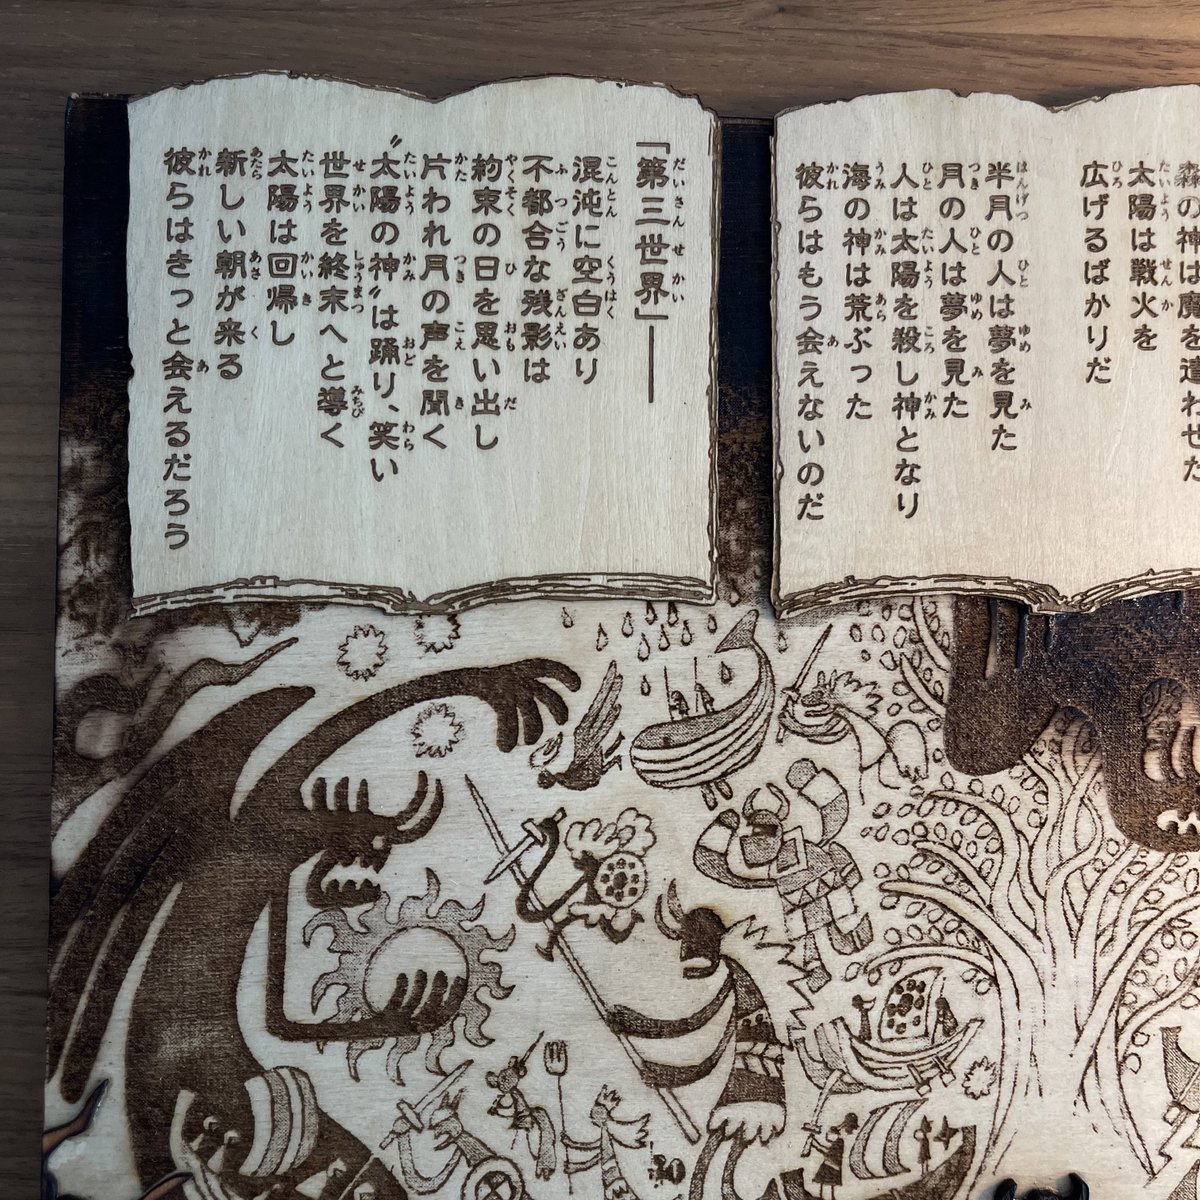 森の神は魔を遣わせた
太陽は戦火を
広げるばかりだ
半月の人は夢を見た
月の人は夢を見た
人は太陽を殺し神となり
海の神は荒ぶった
彼らはもう会えないのだ
「第三世界」——
混沌に空白あり
不都合な残影は
約束の日を思い出し
片われ月の声を聞く
〝太陽の神〟は踊り、笑い
世界を終末へと導く
太陽は回帰し
新しい朝が来る
彼らはきっと会えるだろう